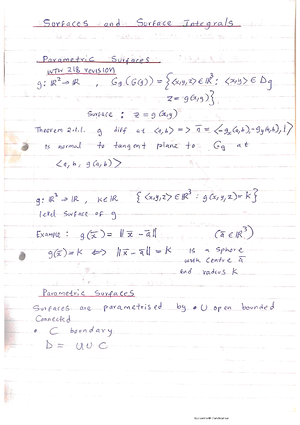 Surfaces and Surface Integrals
Parametric Surfaces
WTW 218 revision
g: ℝ² → ℝ , G_g (G(g)) = {<x,y,z> ∈ ℝ³ : <x,y> ∈ D_g
z = g(x,y)}
Surface : z = g(x,y)
Theorem 2.1.1. g diff at <a,b> => n̄ = <-g_x(a,b), -g_y(a,b), 1>
is normal to tangent plane to G_g at
<a, b, g(a,b)>
g: ℝ³ → ℝ , K∈ℝ {<x,y,z> ∈ ℝ³ : g(x,y,z) = K}
level surface of g
Example : g(x̄) = ||x̄ - ā|| (ā ∈ ℝ³)
g(x̄) = K <=> ||x̄ - ā|| = K is a sphere
with centre ā
and radius K
Parametric Surfaces
Surfaces are parametrised by • U open bounded
Connected
• C boundary
D = U ∪ C